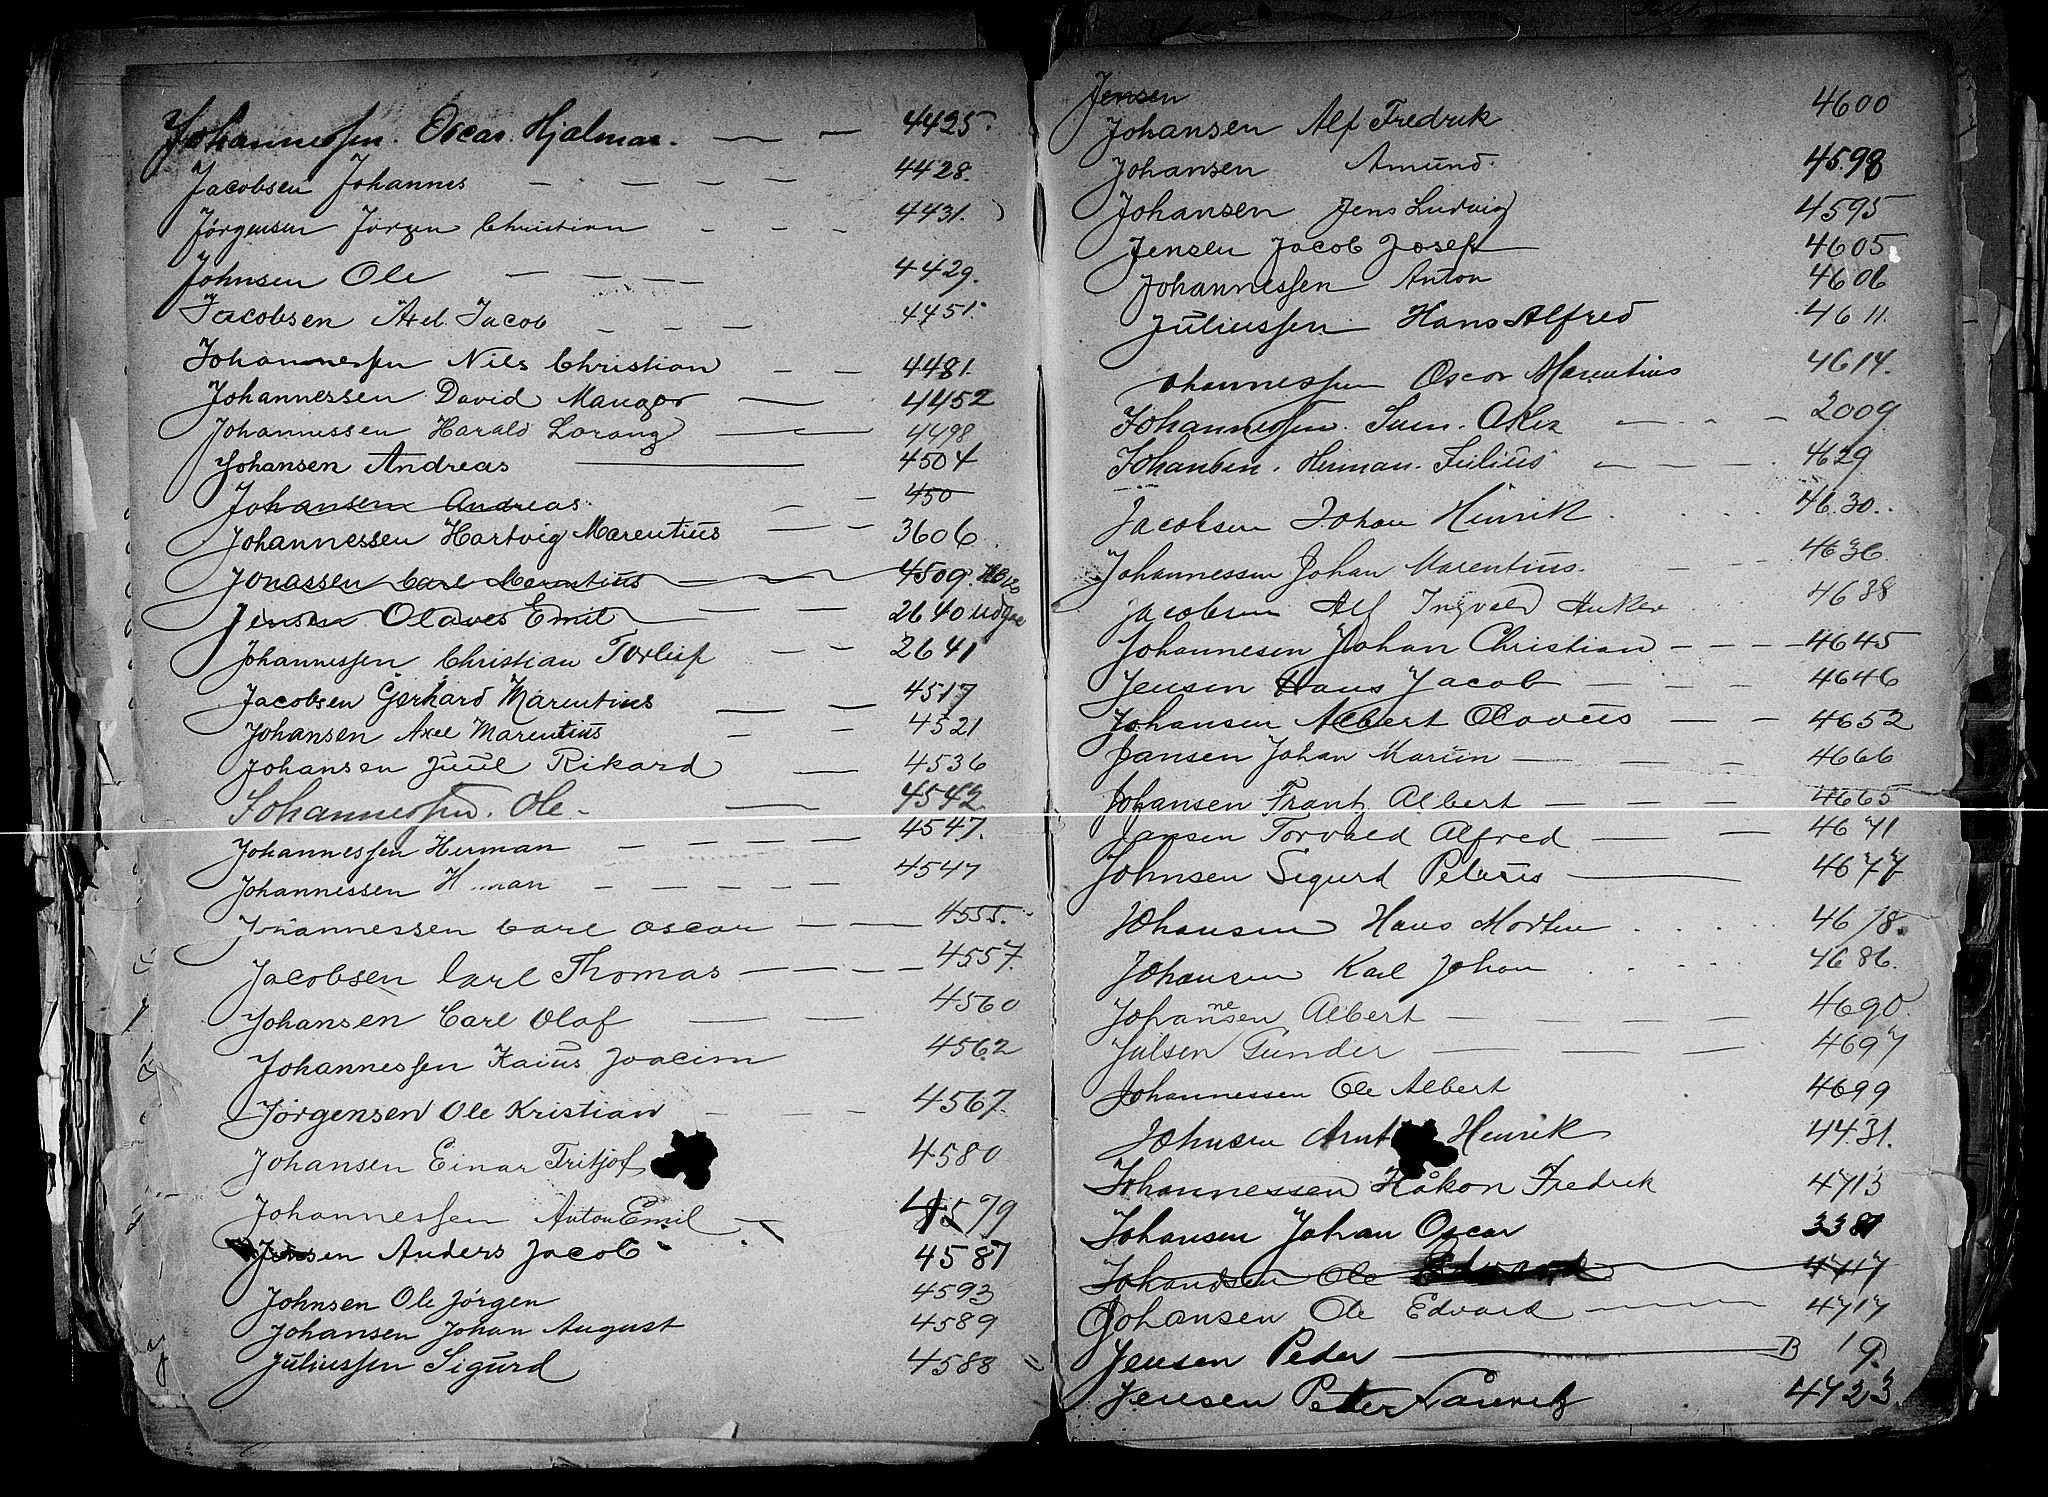 Johannessen. Oscar. Hjalmar. — — 4425.
Jacobsen Johannes — — — — 4428.
Jørgensen Jørgen Christian — — — 4431.
Johnsen Ole — — — 4429.
Jacobsen Axel Jacob — — — 4451.
Johannessen Nils Christian — — 4481.
Johannessen David Mangor — — 4452
Johannessen Harald Lorang — — 4498
Johansen Andreas — 4504
Johansen Andreas. — — 450
Johannessen Hartvig Marentius — — 3606
Jonassen Carl Marentius — — 4509.
Jensen Olaves Emil — — 2640 udgaa
Johannessen Christian Torleif — — 2641
Jacobsen Gerhard Marentius — — 4517
Johansen Axel Marentius — — 4521
Johansen Juul Rikard — 4536
Johannessen. Ole - — 4542
Johannessen Herman — — — — 4547.
Johannessen H..man — — — — — 4547
Johannessen Carl Oscar — — — 4555.
Jacobsen Carl Thomas — — — — 4557.
Johansen Carl Olaf — — 4560
Johannessen Kaius Joacim 4562
Jørgensen Ole Kristian — — — 4567.
Johansen Einar Fritjof 4580
Johannessen Anton Emil — 4579
Jensen Anders Jacob 4587
Johnsen Ole Jørgen 4593
Johansen Johan August 4589
Juliussen Sigurd 4588
Jensen
Johansen Alf Fredrik 4600
Johansen Amund. 4598
Johansen Jens Ludvig 4595
Jensen Jacob Josef 4605
Johannessen Anton 4606
Juliussen Hans Alfred 4611.
ohannessen Oscar Marentius 4614.
Johannessen. Sven. — - - — 2009
Johansen. Herman. Julius — — — 4629
Jacobsen Johan Hinrik . . . . 4630.
Johannessen Johan Marentius. — — 4636.
Jacobsen Alf Ingvald Anker 4638
Johannesen Johan Christian — — — — 4645
Jensen Hans Jacob — — — 4646
Johansen Albert Olavus — — 4652
Jansen Johan Martin — — — 4666
Johansen Frantz Albert — — — — 4665
Jansen Torvald Alfred — — 4671
Johnsen Sigurd Petersen — 4677
Johansen Hans Morten . . . . 4678.
Johansen Karl Johan . . . . 4686.
Johannesen Albert — — — — — 4690.
Julsen Gunder — — — — 4697
Johannessen Ole Albert 4699
Johnsen Arnt Henrik 4431.
Johannessen Håkon Fredrik 4713
Johansen Johan Oscar 3381
Johandsen Ole Edvard 4717
Johansen Ole Edvard — — 4717
Jensen Peder — B 19.
Jensen Petter Lauritz 4723